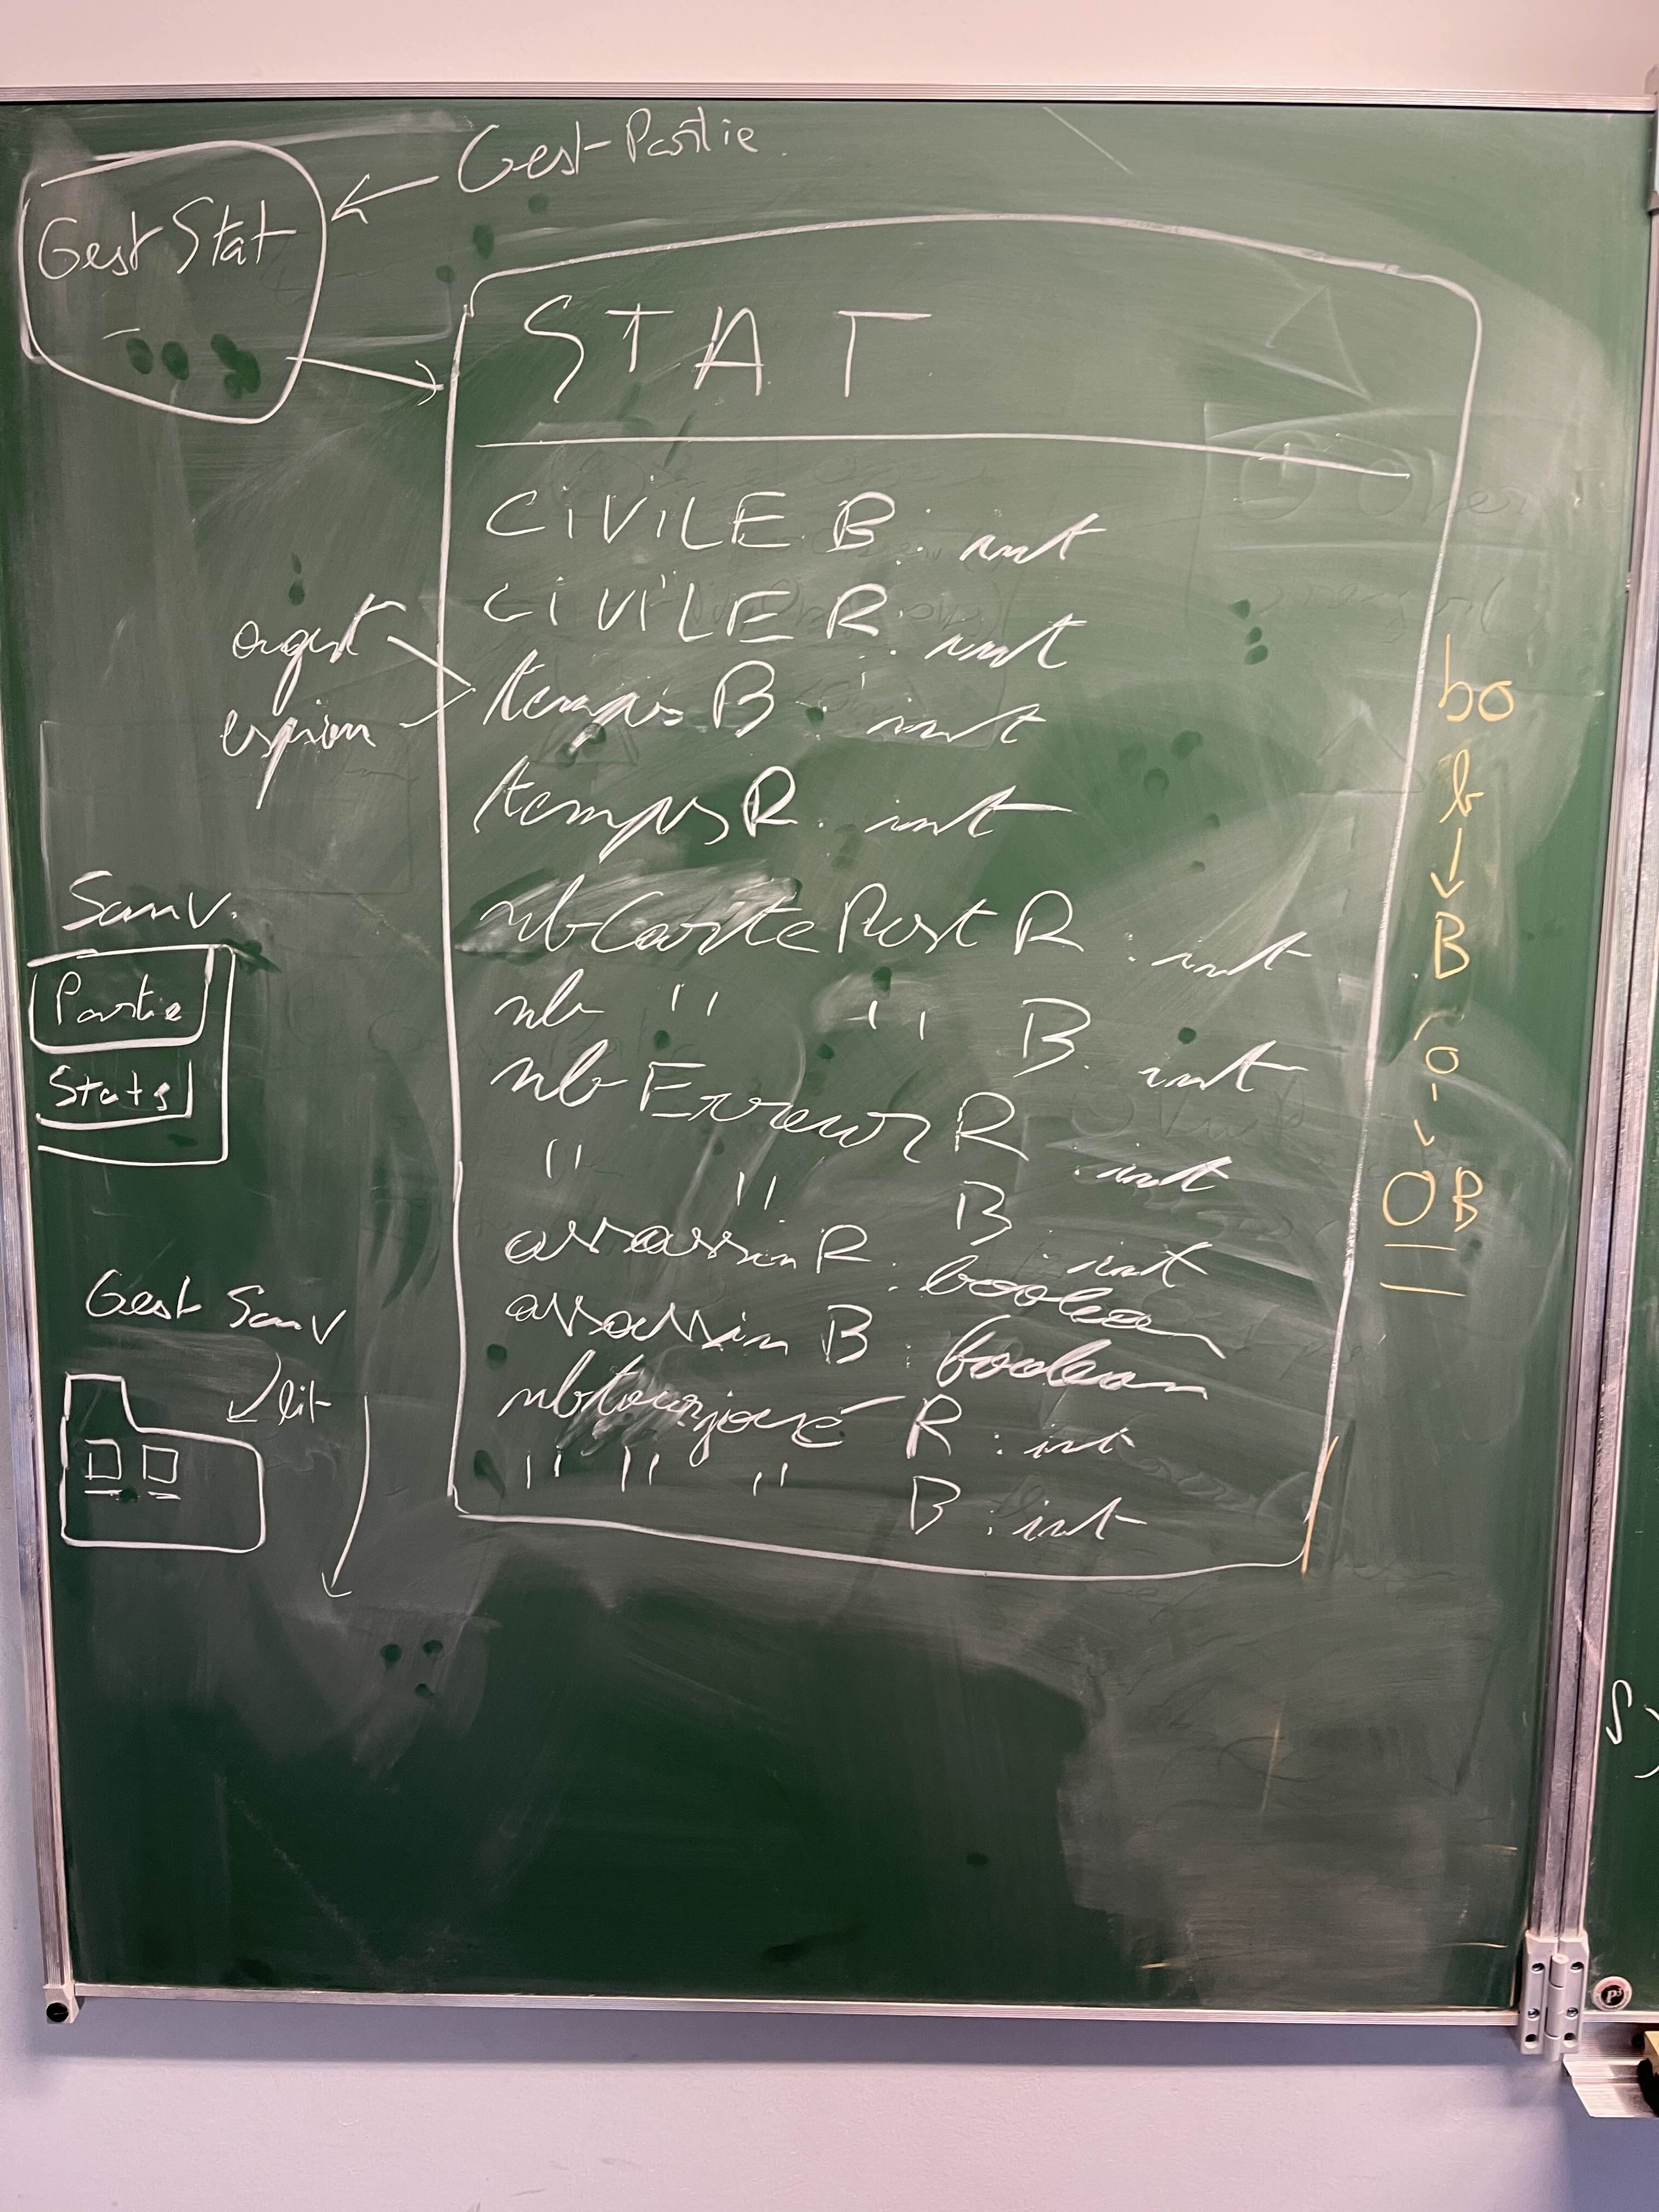 Gest-Partie
Gest Stat
STAT
CiViLE B : int
CiViLE R : int
temps B : int
temps R : int
espion
nbCartePost R : int
nb " " B : int
nb Erreur R : int
" " B : int
assassin R : boolean
assassin B : boolean
nbtourjoué R : int
" " " B : int
Sauv.
Partie
Stats
Gest Sauv
lit
bo
b
B
o
OB